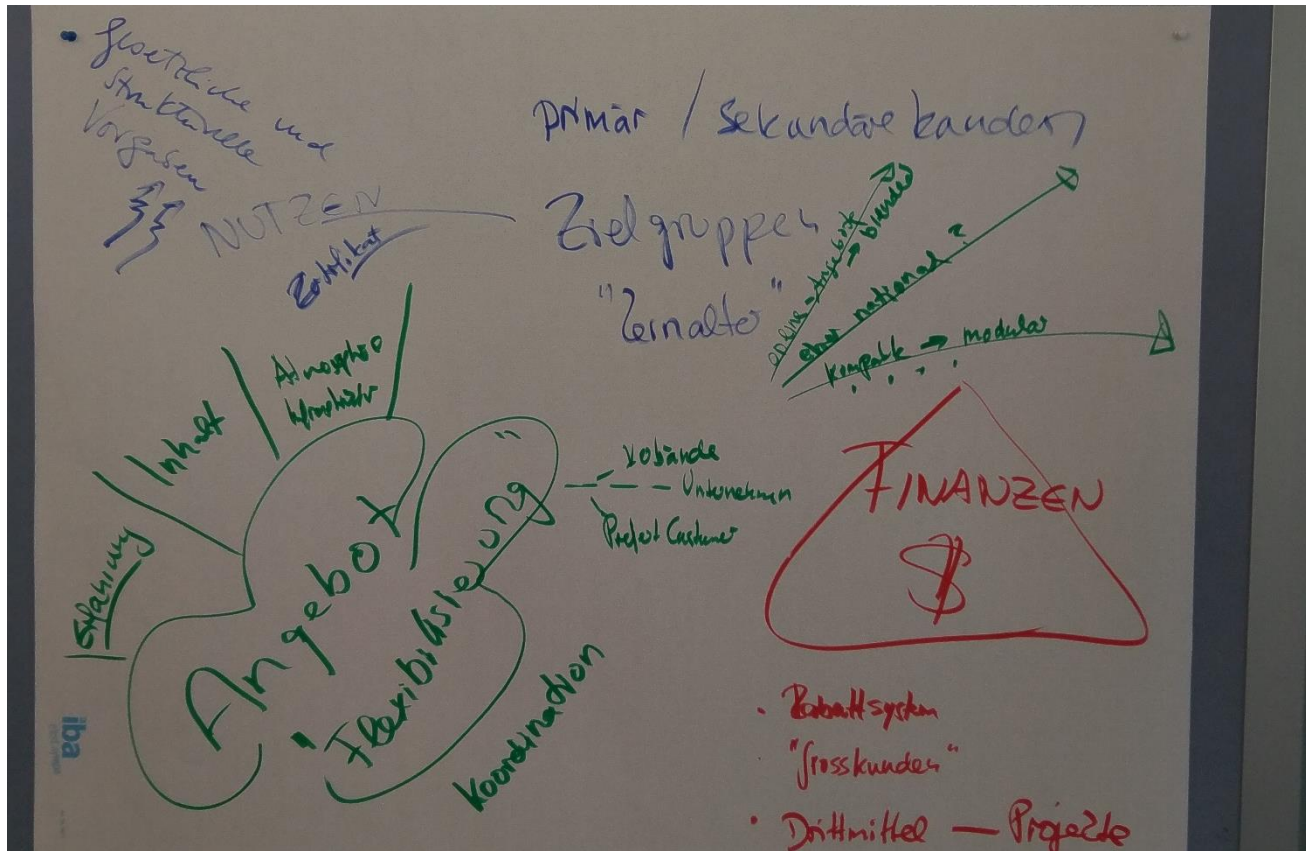 Gesetzliche und
strukturelle
Vorgaben
NUTZEN
Zertifikat
primär / Sekundäre kunden
Zielgruppen
"Lernalter"
online - Angebot → blended
national?
kompakt → modular
Atmosphäre
Inhalt
Erfahrung
Angebot
"Flexibilisierung"
Koordination
Verbände
Unternehmen
Prefert Custumer
FINANZEN
$
• Rabattsystem
"Grosskunden"
• Drittmittel — Projekte
iba